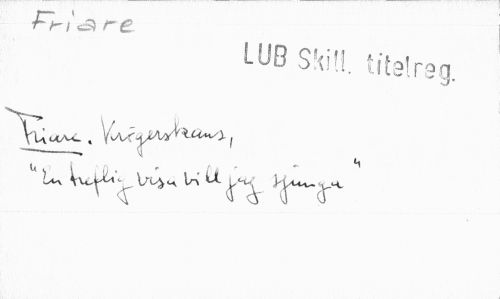 Friare
LUB Skill. titelreg.
Friare. Krögerskans,
"En treflig visa vill jag sjunga"